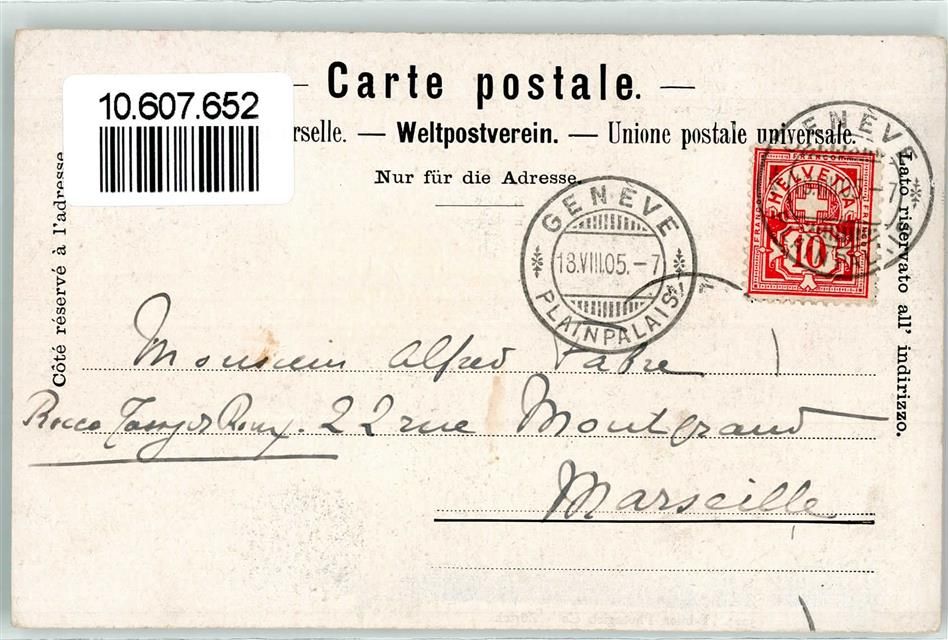 Carte postale.
10.607.652
rselle. — Weltpostverein. — Unione postale universale.
Nur für die Adresse.
Côté réservé à l'adresse
Lato riservato all' indirizzo.
GENÈVE
18.VIII.05.-7
PLAINPALAIS
GENÈVE
-7
FRANCO
HELVETIA
FRANCO
10
Monsieur Alfred Fabre
22 rue Montgrand
Marseille